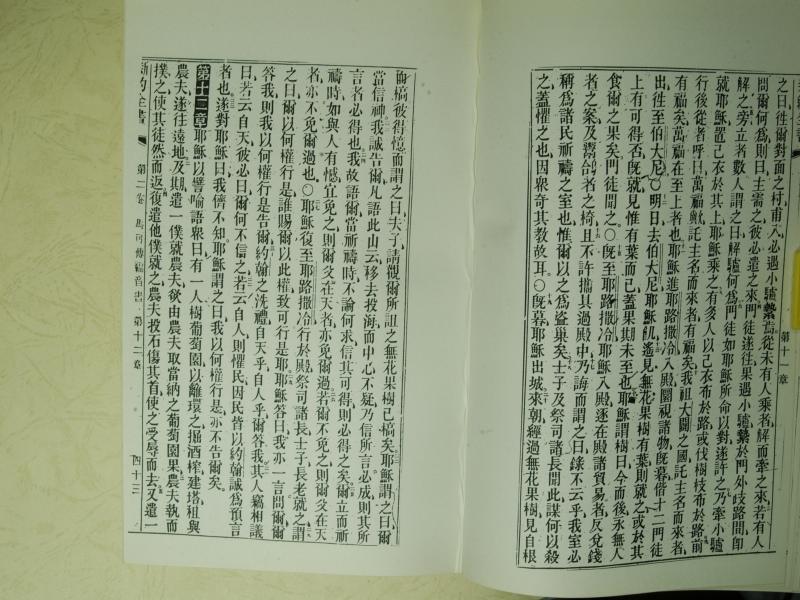 之曰往爾對面之村甫入必遇小驢縶焉從未有人乘者解而牽之來若有人
問爾何爲則曰主需之彼必遣之來門徒遂往果遇小驢縶於門外歧路間卽
解之旁立者數人謂之曰解驢何爲門徒如耶穌所命以對遂許之乃牽小驢
就耶穌置己衣於其上耶穌乘之有多人以己衣布於路或伐樹枝布於路前
行後從者呼曰萬福歟託主名而來者有福矣我祖大闢之國託主名而來者
有福矣萬福在至上者也耶穌進耶路撒冷入殿周視諸物旣暮偕十二門徒
出往至伯大尼〇明日去伯大尼耶穌飢遙見無花果樹有葉則就之或於其
上有可得否旣就見惟有葉而已蓋果期未至也耶穌謂樹曰今而後永無人
食爾之果矣門徒聞之〇旣至耶路撒冷耶穌入殿逐在殿諸貿易者反兌錢
者之案及鬻鴿者之椅且不許攜具過殿中乃誨而謂之曰錄不云乎我室必
稱爲諸民祈禱之室也惟爾以之爲盜巢矣士子及祭司諸長聞此謀何以殺
之蓋懼之也因衆奇其教故耳〇旣暮耶穌出城來朝經過無花果樹見自根
第十一章
而槁彼得憶而謂之曰夫子請觀爾所詛之無花果樹已槁矣耶穌謂之曰爾
當信神我誠告爾凡語此山云移去投海而中心不疑乃信所言必成則其所
言者必得也我故語爾當祈禱時不論何求信其可得則必得之矣爾立而祈
禱時如與人有憾宜免之則爾父在天者亦免爾過若爾不免之則爾父在天
者亦不免爾過也〇耶穌復至耶路撒冷行於殿祭司諸長士子長老就之謂
之曰爾以何權行是誰賜爾以此權致可行是耶耶穌答曰我亦一言問爾爾
答我則我以何權行是告爾約翰之洗禮自天乎自人乎爾答我其人竊相議
曰若云自天彼必曰爾何不信之若云自人則懼民因民皆以約翰誠爲預言
者也遂對耶穌曰我儕不知耶穌謂之曰我以何權行是亦不告爾矣
第十二章耶穌以譬喻語衆曰有一人樹葡萄園以籬環之掘酒榨建塔租與
農夫遂往遠地及期遣一僕就農夫欲由農夫取當納之葡萄園果農夫執而
撲之使其徒然而返復遣他僕就之農夫投石傷其首使之受辱而去又遣一
新約全書
第二卷
馬可傳福音書
第十二章
四十三